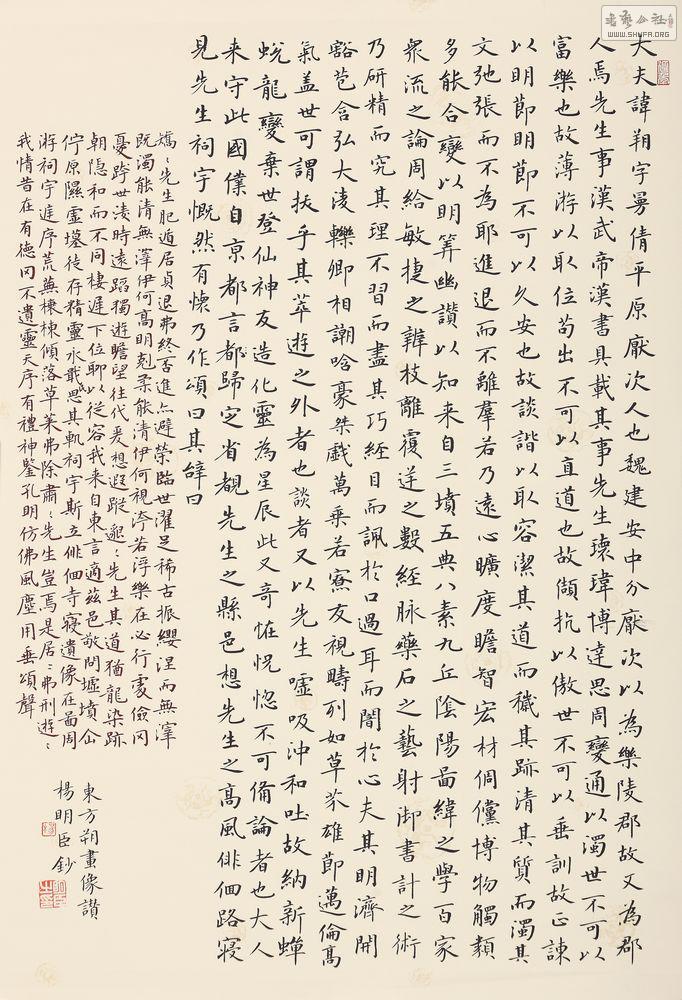 大夫諱朔字曼倩平原厭次人也魏建安中分厭次以為樂陵郡故又為郡
人焉先生事漢武帝漢書具載其事先生瓌瑋博達思周變通以濁世不可以
富樂也故薄游以取位苟出不可以直道也故頡抗以傲世不可以垂訓故正諫
以明節明節不可以久安也故談諧以取容潔其道而穢其跡清其質而濁其
文弛張而不為耶進退而不離羣若乃遠心曠度瞻智宏材倜儻博物觸類
多能合變以明筭幽讚以知来自三墳五典八素九丘陰陽啚緯之學百家
衆流之論周給敏捷之辨枝離覆逆之數經脉藥石之藝射御書計之術
乃研精而究其理不習而盡其巧經目而諷於口過耳而闇於心夫其明濟開
豁苞含弘大淩轢卿相謿哈豪桀戲萬乗若寮友視疇列如草芥雄節邁倫高
氣盖世可謂拔乎其萃遊之外者也談者又以先生噓吸沖和吐故納新蟬
蛻龍變棄世登仙神友造化靈為星辰此又奇恠怳惚不可備論者也大人
来守此國僕自京都言歸定省覩先生之縣邑想先生之高風俳佪路寢
見先生祠宇慨然有懷乃作頌曰其辭曰
矯〻先生肥遁居貞退弗終否進亦避榮臨世濯足稀古振纓涅而無滓
既濁能清無滓伊何高明剋柔能清伊何視汙若浮樂在必行處儉罔
憂跨世淩時遠蹈獨遊瞻望往代爰想遐蹤邈〻先生其道猶龍染跡
朝隐和而不同棲遲下位聊以従容我来自東言適茲邑敬問墟墳企
佇原隰靈墓徒存精靈永戢思其軌祠宇斯立俳佪寺寢遺像在啚周
游祠宇遅序荒蕪榱棟傾落草莱弗除肅〻先生豈焉是居〻弗刑遊〻
我情昔在有德罔不遺靈天序有禮神鑒孔明仿佛風塵用垂頌聲
東方朔畫像讃
楊明臣鈔
WWW.SHUFA.ORG